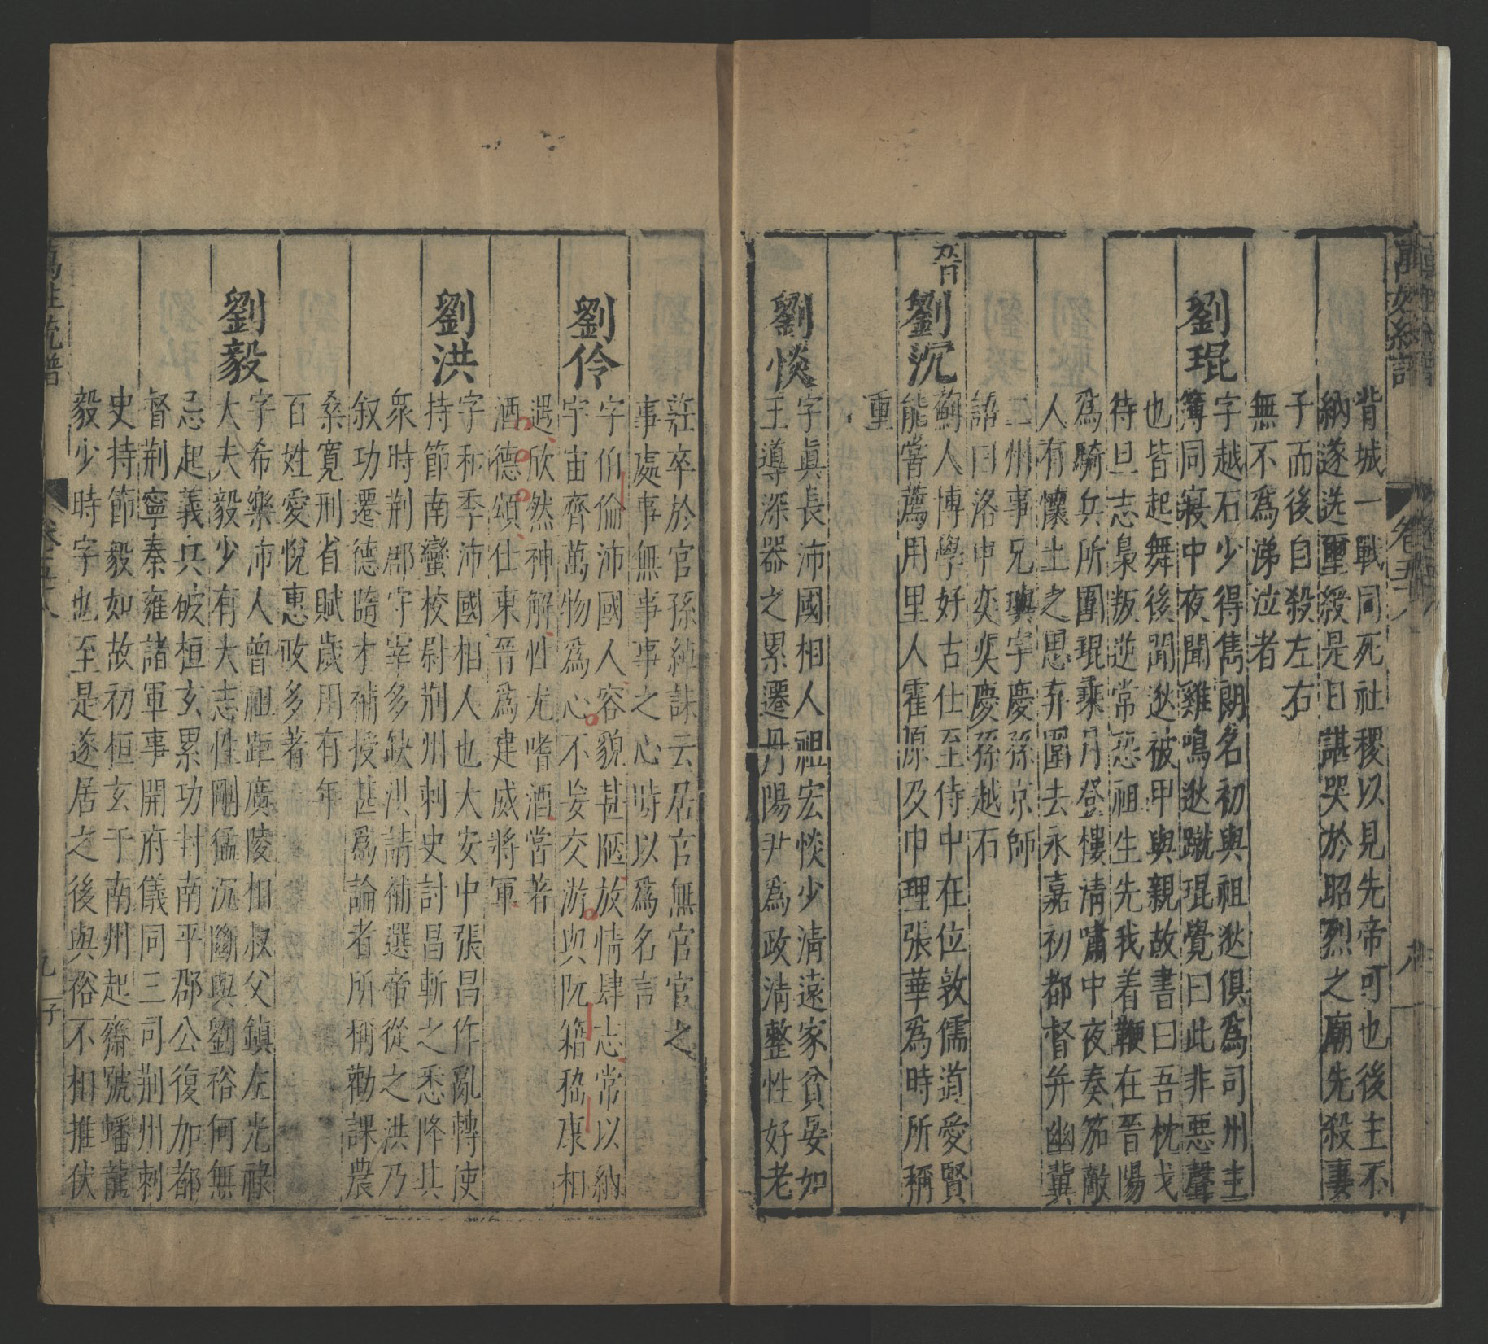 背城一戰同死社稷以見先帝可也後主不
納遂送璽綬是日諶哭於昭烈之廟先殺妻
子而後自殺左右
無不為涕泣者
劉琨
字越石少得雋朗名初與祖逖俱為司州主
簿同寢中夜聞雞鳴逖蹴琨覺曰此非惡聲
也皆起舞後聞逖被甲與親故書曰吾枕戈
待旦志梟叛逆常恐祖生先我着鞭在晉陽
為騎兵所圍琨乘月登樓清嘯中夜奏笳敵
人有懷土之思弃圍去永嘉初都督并幽冀
三州事兄璵字慶孫京師
語曰洛中奕奕慶孫越石
晉
劉沉
薊人博學好古仕至侍中在位敦儒道愛賢
能嘗薦用里人霍原及巾理張華為時所稱
重
劉惔
字眞長沛國相人祖宏惔少清遠家貧晏如
王導深器之累遷丹陽尹為政清整性好老
莊卒於官孫綽誄云居官無官官之
事處事無事事之心時以為名言
劉伶
字伯倫沛國人容貌甚陋放情肆志常以納
宇宙齊萬物為心不妄交游與阮籍嵇康相
遇欣然神解性尤嗜酒嘗著
酒德頌仕東晉為建威將軍
劉洪
字和季沛國相人也大安中張昌作亂轉使
持節南蠻校尉荆州刺史討昌斬之悉降其
衆時荆郡守宰多缺洪請補選帝從之洪乃
叙功遷德隨才補授甚為論者所稱勸課農
桑寬刑省賦歲用有年
百姓愛悅惠政多著
劉毅
字希樂沛人曾祖距廣陵相叔父鎮左光祿
大夫毅少有大志性剛猛沉斷與劉裕何無
忌起義兵破桓玄累功封南平郡公復加都
督荆寧秦雍諸軍事開府儀同三司荆州刺
史持節毅如故初桓玄于南州起齋號蟠龍
毅少時字也至是遂居之後與裕不相推伏